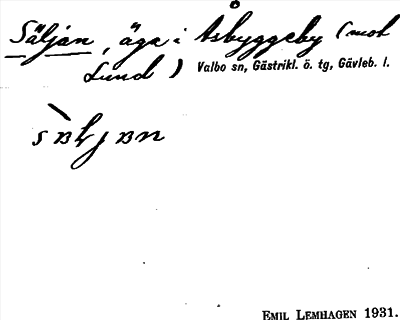 Säljan, äga i Åsbyggeby (mot
Lund) Valbo sn, Gästrikl. ö. tg, Gävleb. l.
EMIL LEMHAGEN 1931.